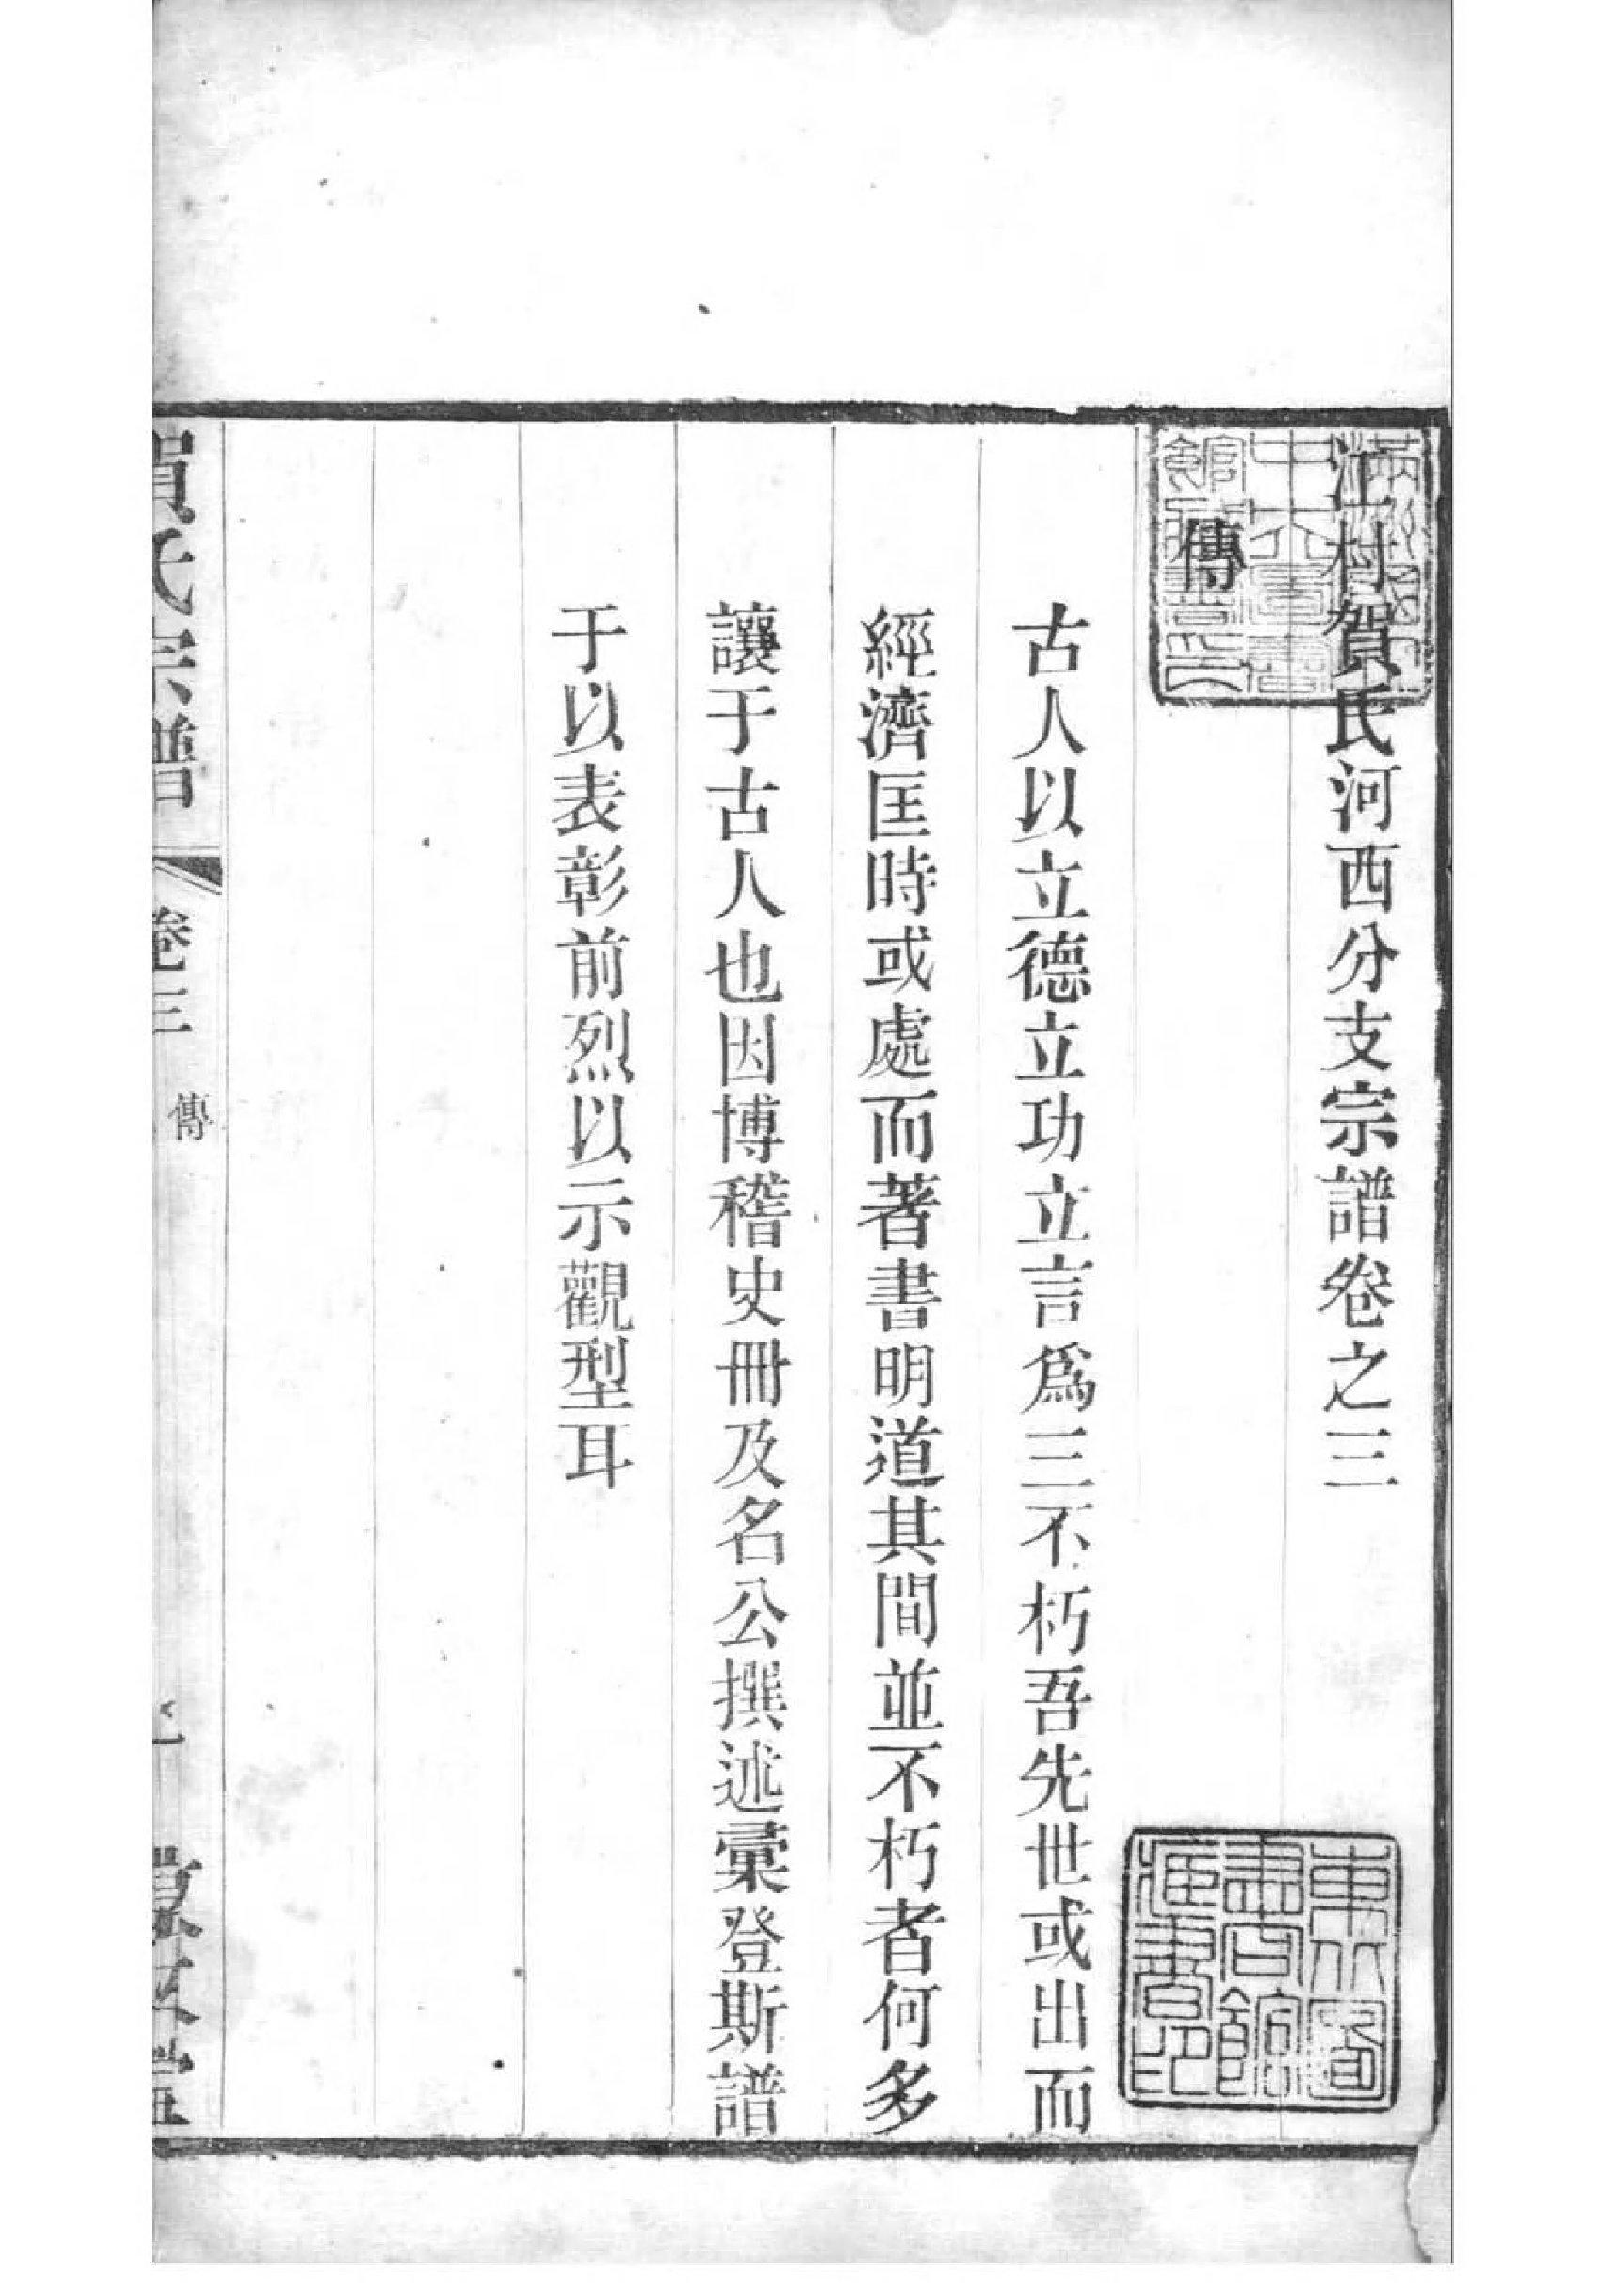 江村賀氏河西分支宗譜卷之三
傳
古人以立德立功立言爲三不朽吾先世或出而
經濟匡時或處而著書明道其間並不朽者何多
讓于古人也因博稽史冊及名公撰述彙登斯譜
于以表彰前烈以示觀型耳
賀氏宗譜
卷三
傳